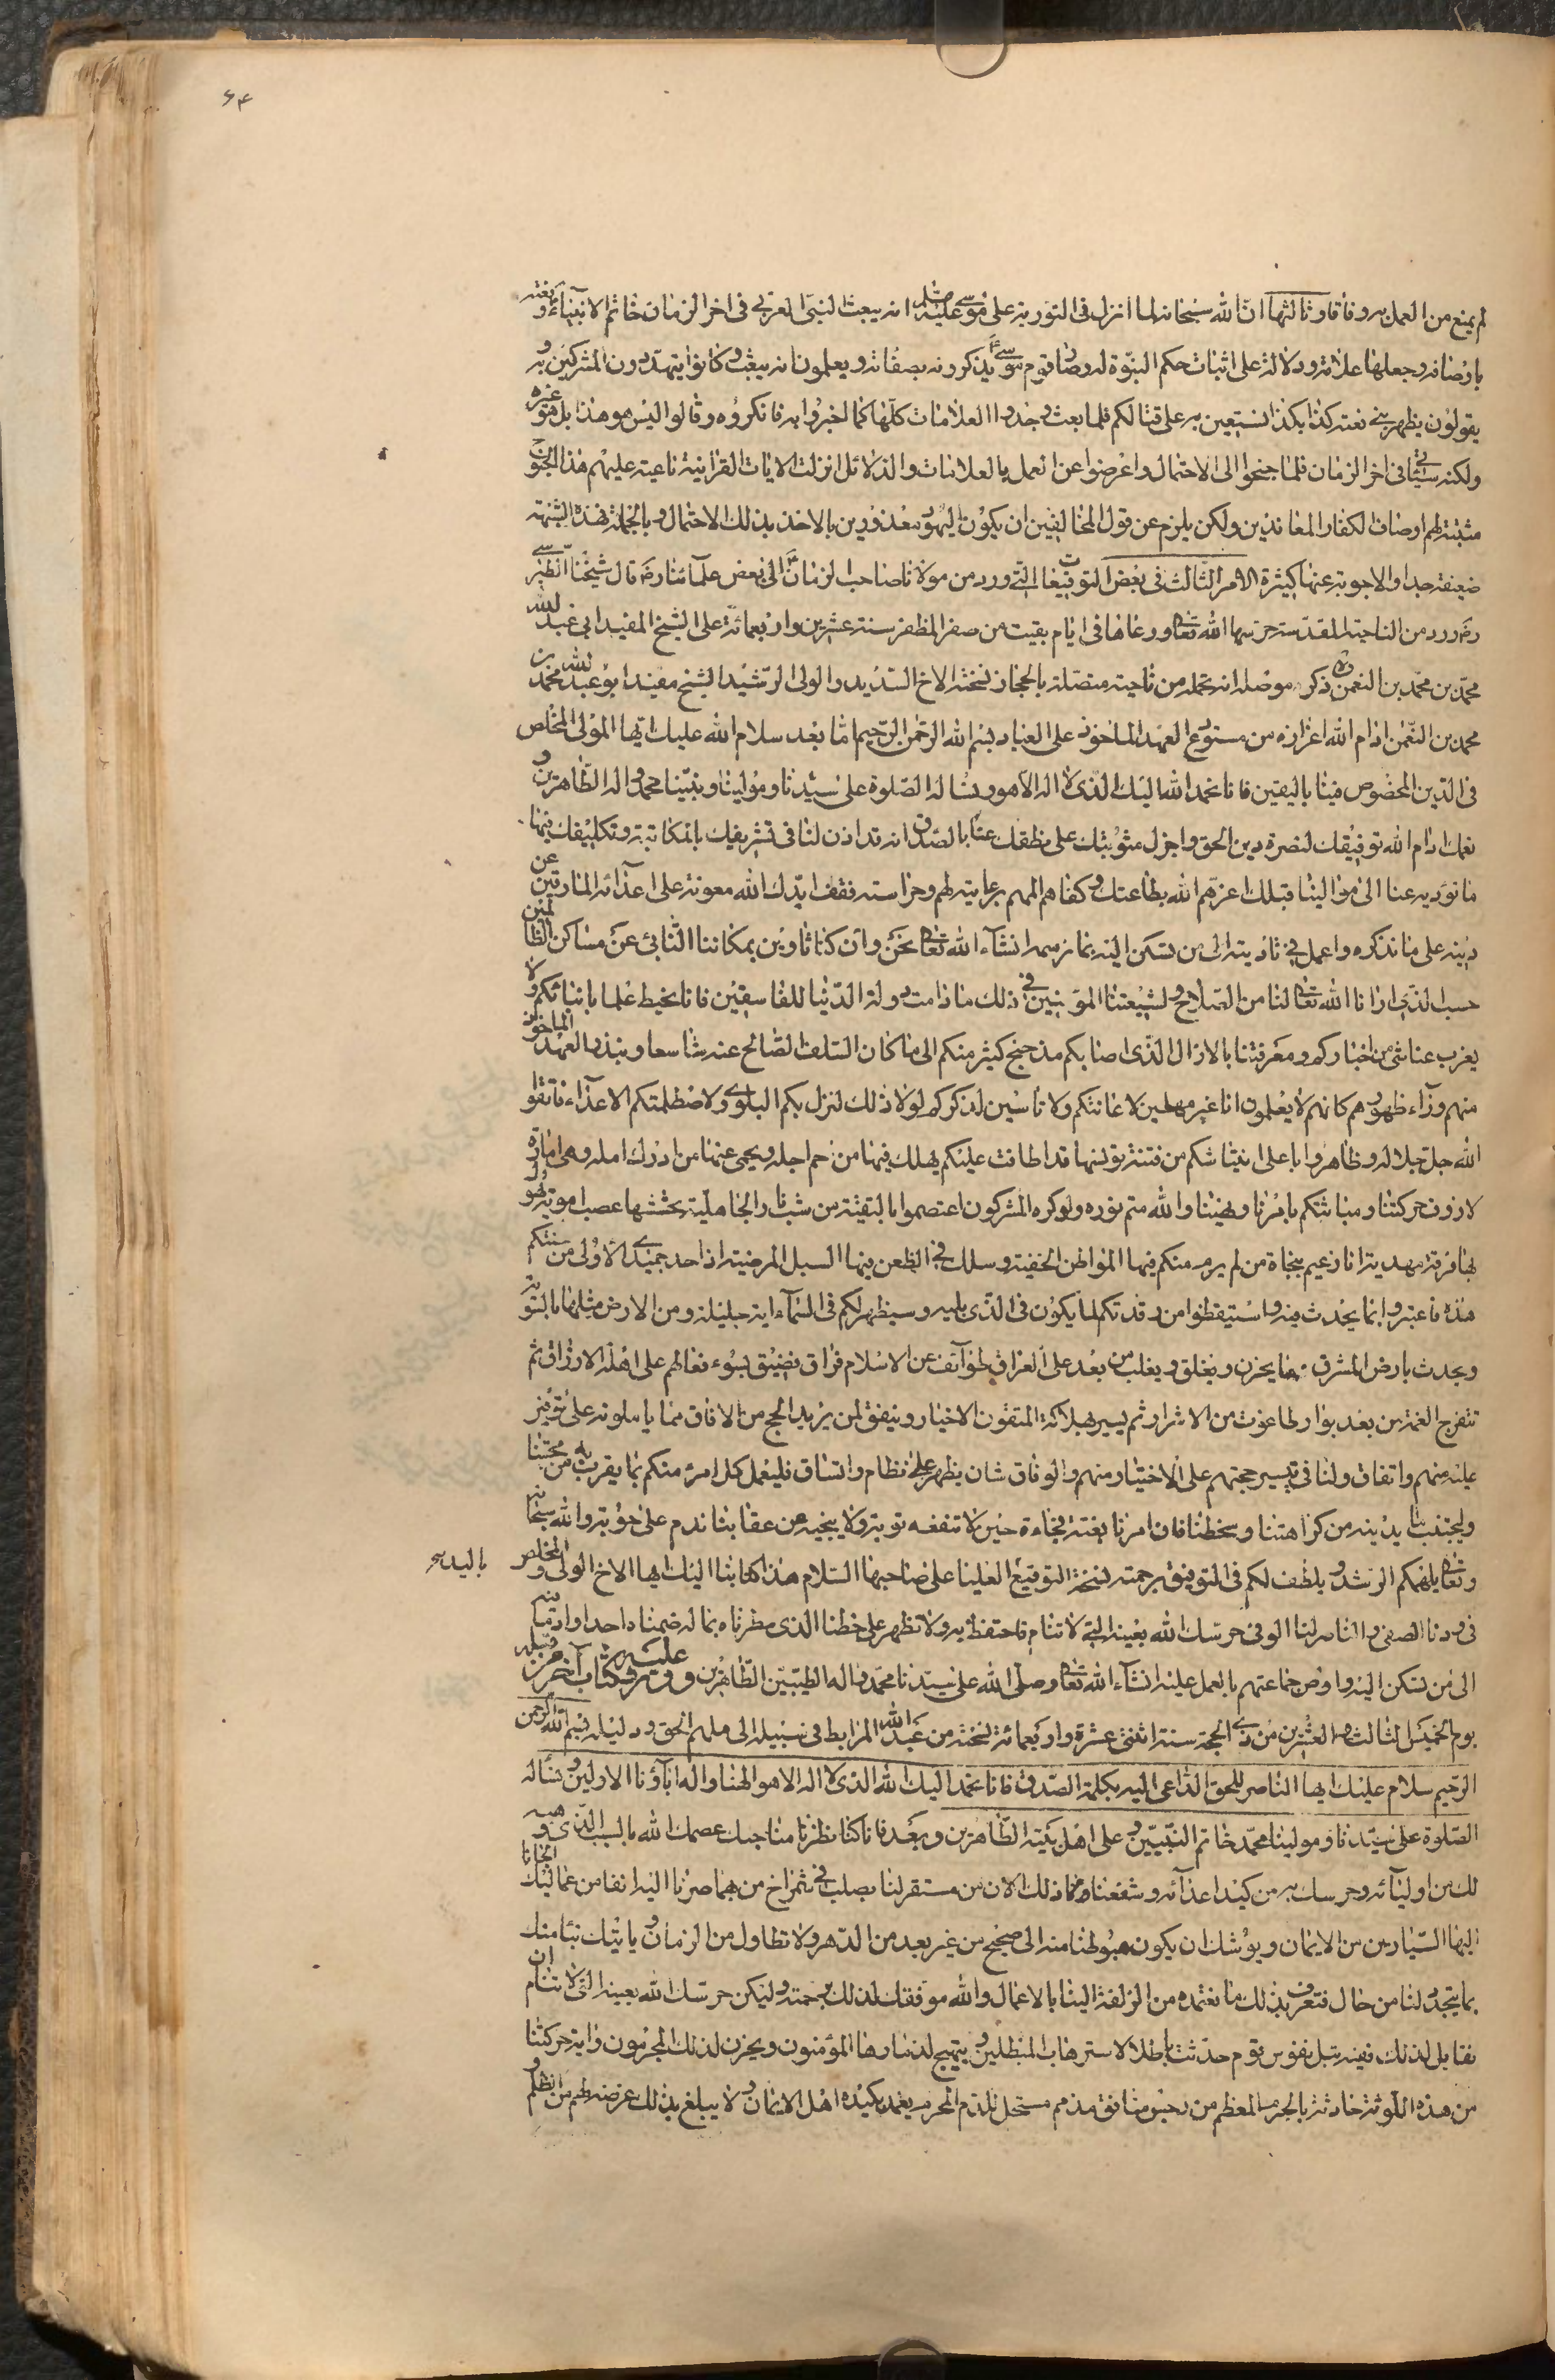 ۶۴
لم يمنع من العمل به وفاقا وثالثها ان الله سبحانه لما انزل فى التورية على موسى عليه السلم انه يبعث النبى العربى فى اخر الزمان خاتم الانبياء و نعته
باوصافه وجعلها علامة ودلالة على اثبات حكم النبوة له وصار قوم موسى ع يذكرونه بصفاته ويعلمون انه يبعث وكانوا يتهددون المشركين به و
يقولون يظهر نبى نعته كذا بكذا نستعين به على قتالكم فلما بعث وجدوا العلامات كلها كما اخبروا به فانكروه وقالوا ليس هو هذا بل هو غيره
ولكنه سياتى فى اخر الزمان فلما جنحوا الى الاحتمال واعرضوا عن العمل بالعلامات والدلائل انزلت الايات القرانية ناعية عليهم هذا الجنوح
مثبتة لهم اوصاف الكفار والمعاندين ولكن يلزم عن قول المخالفين ان يكون اليهود معذورين بالاخذ بذلك الاحتمال وبالجملة فهذه الشبهة
ضعيفة جدا والاجوبة عنها كثيرة الامر الثالث فى بعض التوقيعات التى ورد من مولانا صاحب الزمان ع الى بعض علمائنا ره قال شيخنا الطبرسى
ره ورد من الناحية المقدسة حرسها الله تعالى ورعاها فى ايام بقيت من صفر المظفر سنة عشرين واربعمائة على الشيخ المفيد ابى عبد الله
محمد بن محمد بن النعمن ره ذكر موصله انه تحمله من ناحية متصلة بالحجاز نسخته الاخ السديد والولى الرشيد الشيخ مفيد ابو عبد الله محمد بن
محمد بن النعمن ادام الله اعزازه من مستودع العهد الماخوذ على العباد بسم الله الرحمن الرحيم اما بعد سلام الله عليك ايها المولى المخلص
فى الدين المخصوص فينا باليقين فانا نحمد الله اليك الذى لا اله الا هو ونساله الصلوة على سيدنا ومولينا ونبينا محمد واله الطاهرين و
نعلمك ادام الله توفيقك لنصرة دين الحق واجزل مثوبتك على نطقك عنا بالصدق انه قد اذن لنا فى تشريفك بالمكاتبة وتكليفك فيها
ما نوديه عنا الى موالينا قبلك اعزهم الله بطاعته وكفاهم المهم برعايته لهم وحراسته فقف ايدك الله معونته على اعدائه المارقين عن
دينه على ما نذكره واعمل فى تاديته الى من تسكن اليه بما نرسمه انشاء الله تعالى نحن وان كنا ثاوين بمكاننا النائى عن مساكن الظالمين
حسب الذى ارانا الله تعالى لنا من الصلاح ولشيعتنا المؤمنين فى ذلك ما دامت دولة الدنيا للفاسقين فانا يحيط علما بانبائكم ولا
يعزب عنا شئ من اخباركم ومعرفتنا بالازال الذى اصابكم مذ جنح كثير منكم الى ما كان السلف الصالح عنه شاسعا ونبذوا العهد الماخوذ
منهم وراء ظهورهم كانهم لا يعلمون انا غير مهملين لاعانتكم ولا ناسين لذكركم لولا ذلك لنزل بكم البلوى ولاضطلمتكم الاعداء فاتقوا
الله جل جلاله وظاهروا باعلى انتياشكم من فتنة تؤنيها قد اطافت عليكم يهلك فيها من حم اجله ويحمى عنها من ادرك امله وهى امارة
لازوف حركتنا ومباثتكم بامرنا ونهينا والله متم نوره ولو كره المشركون اعتصموا بالتقية من شب نار الجاهلية يحششها عصب اموية يهول
بها فرقة مهدية انا زعيم بنجاة من لم يرم منكم فيها المواطن الخفية وسلك فى الظعن منها السبل المرضية اذا حد جميدى الاولى من سنتكم
هذه فاعتبروا بما يحدث فيه واستيقظوا من رقدتكم لما يكون فى الذى يليه وسيظهر لكم فى السماء اية جليلة ومن الارض مثلها بالسوية
ويحدث بارض المشرق ما يحزن ويغلق ويغلب من بعد على العراق طوائف عن الاسلام مراق تضيق بسوء فعالهم على اهله الارزاق ثم
تنفرج الغمة من بعد بوار طاغوت من الاشرار ثم يسير بهلاكه المتقون الاخيار ويتفق لمن يريد الحج من الافاق مما ياملونه على توفير
عليه منهم واتفاق ولنا فى تيسير حجهم على الاختيار منهم والوفاق شان يظهر على نظام واتساق فليعمل كل امرئ منكم بما يقرب به من محبتنا
وليجتنب ما يدينه من كراهتنا وسخطنا فان امرنا بغتة فجاءة حين لا تنفعه توبة ولا ينجيه من عقابنا ندم على حوبة والله سبحانه
وتعالى يلهمكم الرشد ويلطف لكم فى التوفيق برحمته نسخة التوقيع العليا على صاحبها السلام هذا كتابنا اليك ايها الاخ الولى والمخلص
فى ودنا الصفى والناصر لنا الوفى حرسك الله بعينه التى لا تنام فاحتفظ به ولا تظهر على خطنا الذى سطرناه بما له ضمناه احدا واد ما فيه
الى من تسكن اليه واوص جماعتهم بالعمل عليه انشاء الله تعالى وصلى الله على سيدنا محمد واله الطيبين الطاهرين وورد عليه كتاب آخر من قبله
يوم الخميس الثالث والعشرين من ذى الحجة سنة اثنتى عشرة واربعمائة نسخته من عبد الله المرابط فى سبيله الى ملهم الحق ودليله بسم الله الرحمن
الرحيم سلام عليك ايها الناصر للحق الداعى اليه بكلمة الصدق فانا نحمد اليك الله الذى لا اله الا هو الهنا واله ابآؤنا الاولين ونساله
الصلوة على سيدنا ومولينا محمد خاتم النبيين وعلى اهل بيته الطاهرين وبعد فانا كنا نظرنا مناجبك عصمك الله بالسبب الذى وهبه
لك من اوليائه وحرسك به من كيد اعدائه وشفعنا فى ذلك الان من مستقر لنا بصلب فى شمراخ من بهما صرنا اليه انفا من غماليل الجانا
اليها السباريت من الايمان ويوشك ان يكون هبوطنا منه الى صحيح من غير بعد من الدهر ولا تطاول من الزمان وياتيك نبا منك
بما يتجدد لنا من حال فتعرف بذلك ما نعتمده من الزلفة الينا بالاعمال والله موفقك لذلك برحمته وليكن حرسك الله بعينه التى لا تنام ان
تقابل لذلك فيه تبسل نفوس قوم حدثت باطلا لاسترهاب المبطلين ويبتهج لدمارها المؤمنون ويحزن لذلك المجرمون واية حركتنا
من هذه اللوثة حادثة بالحرم المعظم من رجس منافق مذمم مستحل للدم المحرم يعمد بكيده اهل الايمان ولا يبلغ بذلك غرضه لهم من الظلم و